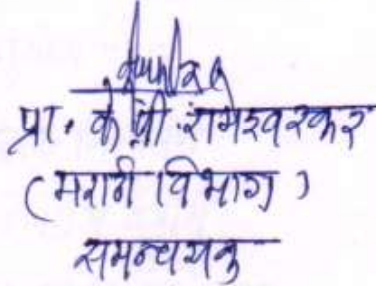 प्रा. के. पी. रामेश्वरकर
(मराठी विभाग)
समन्वयक